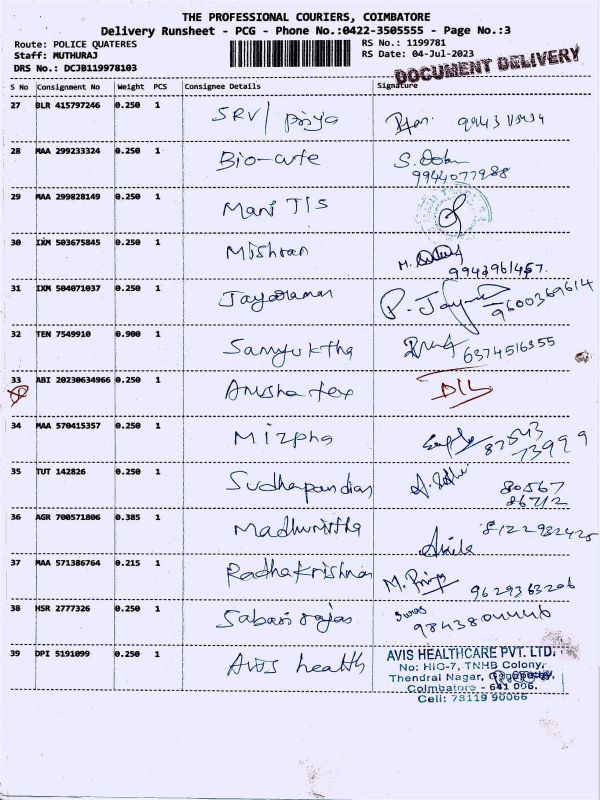 THE PROFESSIONAL COURIERS, COIMBATORE
Delivery Runsheet - PCG - Phone No.:0422-3505555 - Page No.:3
Route: POLICE QUATERES RS No.: 1199781
Staff: MUTHURAJ RS Date: 04-Jul-2023
DRS No.: DCJB119978103 DOCUMENT DELIVERY
S No Consignment No Weight PCS Consignee Details Signature
27 BLR 415797246 0.250 1 SRV/ priya
28 MAA 299233324 0.250 1 Bio-cute
9944077988
29 MAA 299828149 0.250 1 Mani TJS
30 IXM 503675845 0.250 1 Mishran
9943961457.
31 IXM 504071037 0.250 1 Jayaraman
9600369614
32 TEN 7549910 0.900 1 Samyuktha 6374516355
33 ABI 20230634966 0.250 1 Anusha tex D/L
34 MAA 570415357 0.250 1 Mizpha 87543
73999
35 TUT 142826 0.250 1 Sudhapandian 80567
86712
36 AGR 700571806 0.385 1 Madhumitha 8122932425
37 MAA 571386764 0.215 1 Radhakrishnan M. Priya 9629363206
38 HSR 2777326 0.250 1 Sabari rajas
9843804446
39 DPI 5191099 0.250 1 Avis health AVIS HEALTHCARE PVT. LTD.
No: HIG-7, TNHB Colony,
Thendral Nagar,
Coimbatore - 641 006.
Cell: 73119 90066